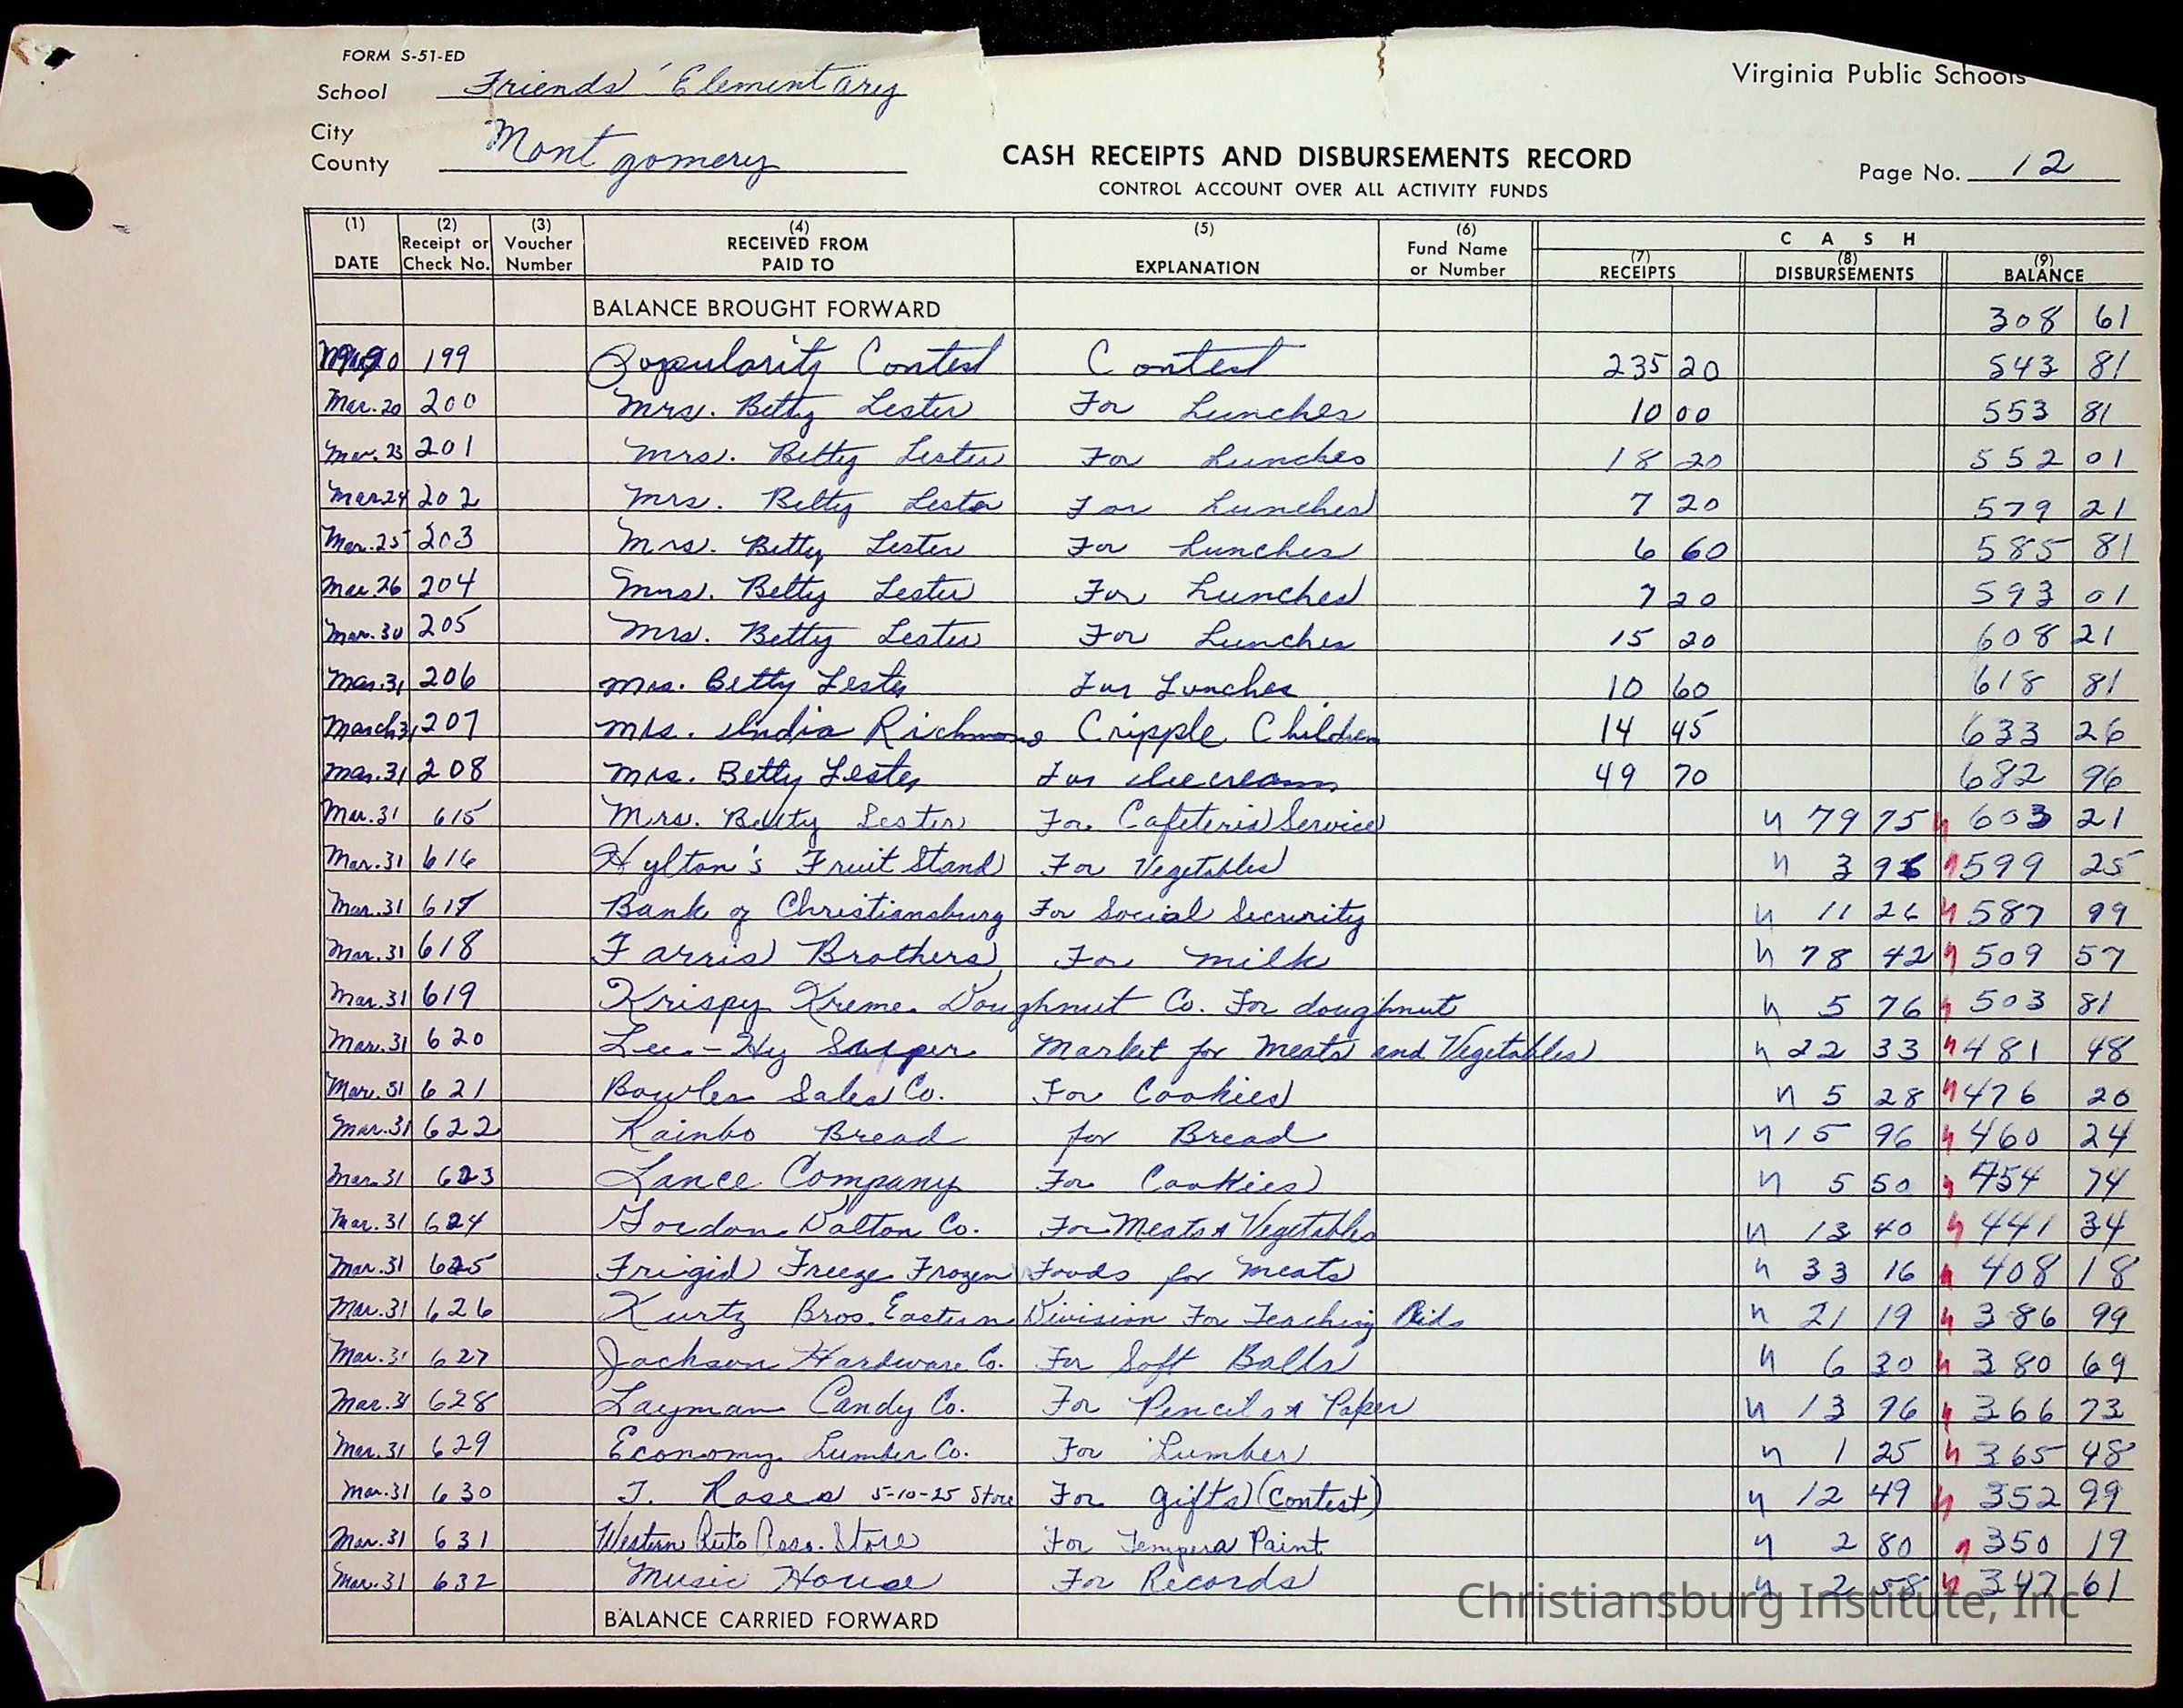 FORM S-51-ED
School Friends' Elementary
Virginia Public Schools
City
County Montgomery
CASH RECEIPTS AND DISBURSEMENTS RECORD
Page No. 12
CONTROL ACCOUNT OVER ALL ACTIVITY FUNDS
(1) DATE (2) Receipt or Check No. (3) Voucher Number (4) RECEIVED FROM PAID TO (5) EXPLANATION (6) Fund Name or Number CASH (7) RECEIPTS (8) DISBURSEMENTS (9) BALANCE
BALANCE BROUGHT FORWARD 308 61
20 199 Popularity Contest Contest 235 20 543 81
Mar. 20 200 Mrs. Betty Lester For Lunches 10 00 553 81
Mar. 23 201 Mrs. Betty Lester For Lunches 18 20 552 01
Mar 24 202 Mrs. Betty Lester For Lunches 7 20 579 21
Mar. 25 203 Mrs. Betty Lester For Lunches 6 60 585 81
Mar 26 204 Mrs. Betty Lester For Lunches 7 20 593 01
Mar. 30 205 Mrs. Betty Lester For Lunches 15 20 608 21
Mar. 31 206 Mrs. Betty Lester For Lunches 10 60 618 81
March 31 207 Mrs. India Richmond Cripple Children 14 45 633 26
Mar. 31 208 Mrs. Betty Lester For Ice cream 49 70 682 96
Mar. 31 615 Mrs. Betty Lester For Cafeteria Service 79 75 603 21
Mar. 31 616 Hylton's Fruit Stand For Vegetables 3 96 599 25
Mar. 31 617 Bank of Christiansburg For Social Security 11 26 587 99
Mar. 31 618 Farris Brothers For milk 78 42 509 57
Mar. 31 619 Krispy Kreme Doughnut Co. For doughnut 5 76 503 81
Mar. 31 620 Lee-Hy Supper Market for Meats and Vegetables 22 33 481 48
Mar. 31 621 Bowles Sales Co. For Cookies 5 28 476 20
Mar. 31 622 Rainbo Bread for Bread 15 96 460 24
Mar. 31 623 Lance Company For Cookies 5 50 454 74
Mar. 31 624 Gordon Dalton Co. For Meats & Vegetables 13 40 441 34
Mar. 31 625 Frigid Freeze Frozen Foods for Meats 33 16 408 18
Mar. 31 626 Kurtz Bros. Eastern Division For Teaching Aids 21 19 386 99
Mar. 31 627 Jackson Hardware Co. For Soft Balls 6 30 380 69
Mar. 31 628 Layman Candy Co. For Pencils & Paper 13 96 366 73
Mar. 31 629 Economy Lumber Co. For Lumber 1 25 365 48
Mar. 31 630 J. Roses 5-10-25 Store For gifts (Contest) 12 49 352 99
Mar. 31 631 Western Auto Asso. Store For Tempera Paint 2 80 350 19
Mar. 31 632 Music House For Records 2 58 347 61
BALANCE CARRIED FORWARD
Christiansburg Institute, Inc